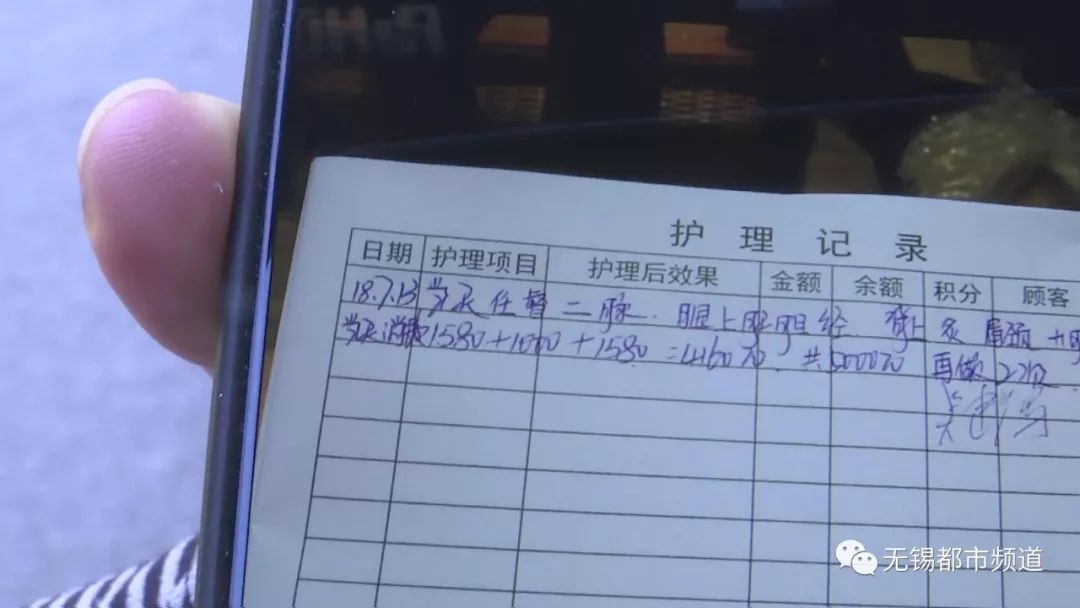 护理记录
日期 护理项目 护理后效果 金额 余额 积分 顾客
18.7.13 当天任督二脉.腿上胆经 背上灸肩颈
当天消费1580+1000+1580=4160元.共5000元 再做2次
无锡都市频道